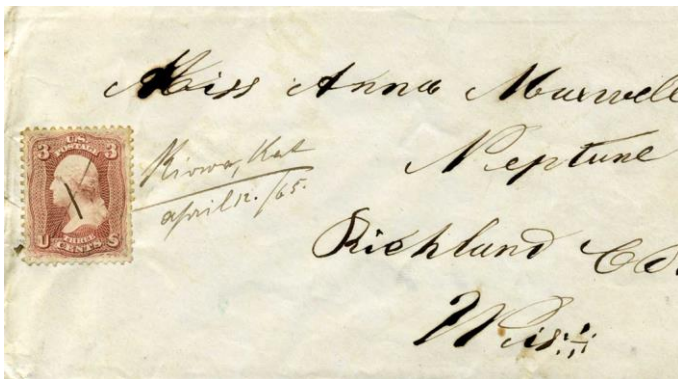 Miss Anna Maxwell
Neptune
Richland Co
Wis
Kiowa, Kat
april 12. /65.
3 U.S. 3
POSTAGE
U THREE S
CENTS